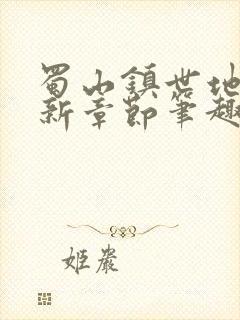 蜀山鎮世地
新章節筆趣
姬叢